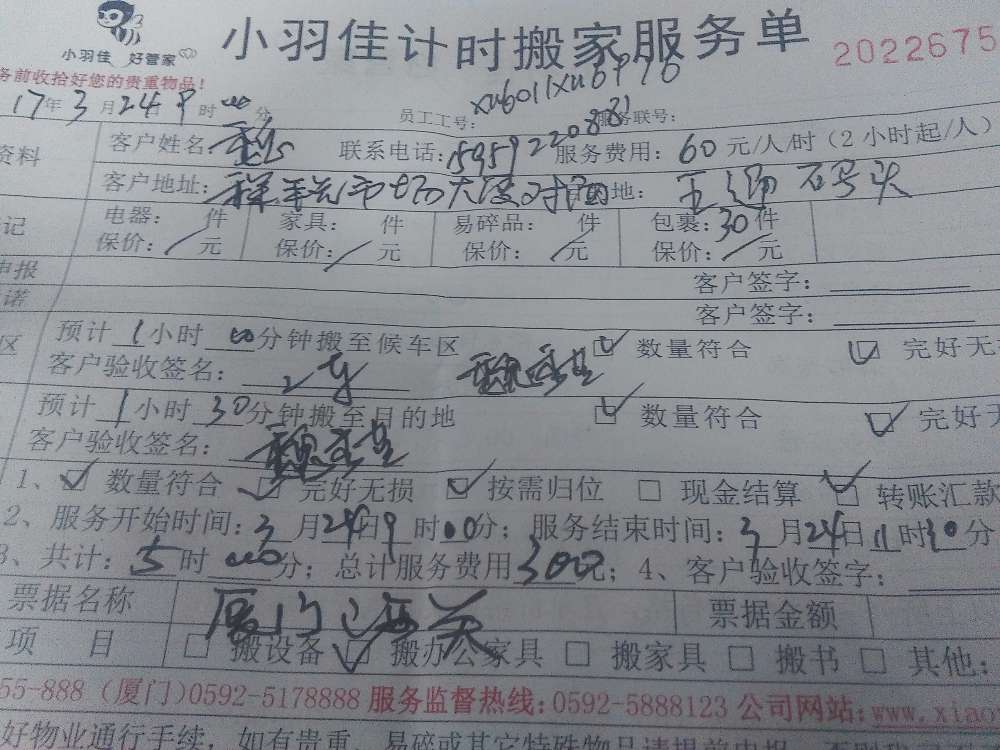 小羽佳 好管家
小羽佳计时搬家服务单
2022675
务前收拾好您的贵重物品!
17年3月24日9时00分 员工工号: xu6011xu6976 服务联号:
资料 客户姓名: 联系电话: 15959220881 服务费用: 60元/人/时(2小时起/人)
客户地址: 祥 市场大 对面 地: 五通码头
记 电器: 件 家具: 件 易碎品: 件 包裹: 30件
保价: /元 保价: /元 保价: /元 保价: /元
申报 客户签字:
诺 客户签字:
区 预计1小时00分钟搬至候车区 数量符合 完好无
客户验收签名:
预计1小时30分钟搬至目的地 数量符合 完好无
客户验收签名:
1、数量符合 完好无损 按需归位 现金结算 转账汇款
2、服务开始时间: 3月24日9时00分; 服务结束时间: 3月24日11时30分
3、共计: 5时00分; 总计服务费用300元; 4、客户验收签字:
票据名称 厦门海关 票据金额
项目 搬设备 搬办公家具 搬家具 搬书 其他:
55-888 (厦门)0592-5178888 服务监督热线: 0592-5888123 公司网站: www.xiao
好物业通行手续,如有贵重、易碎或其它特殊物品请提前申报